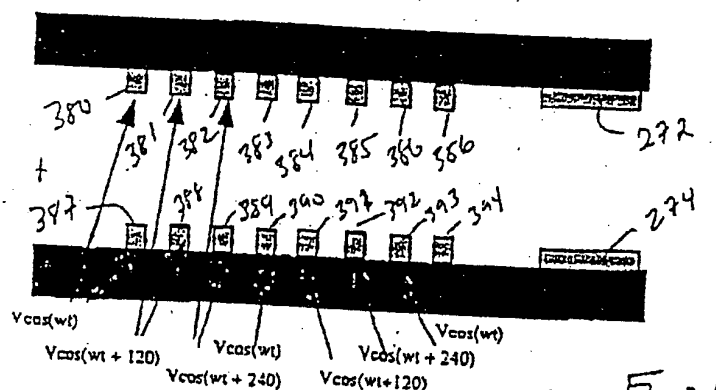 380
381
382
383
384
385
386
386
272
+
387
388
389
390
392
393
394
274
Vcos(wt)
Vcos(wt + 120)
Vcos(wt + 240)
Vcos(wt)
Vcos(wt+120)
Vcos(wt + 240)
Vcos(wt)